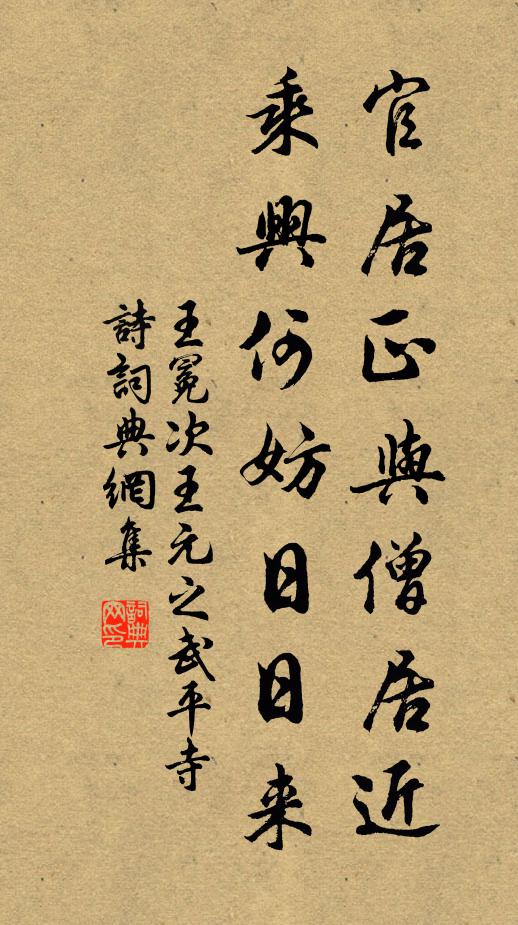 官居正與僧居近
乘興何妨日日来
王冕次王元之武平寺
詩詞典網集
詞典網印